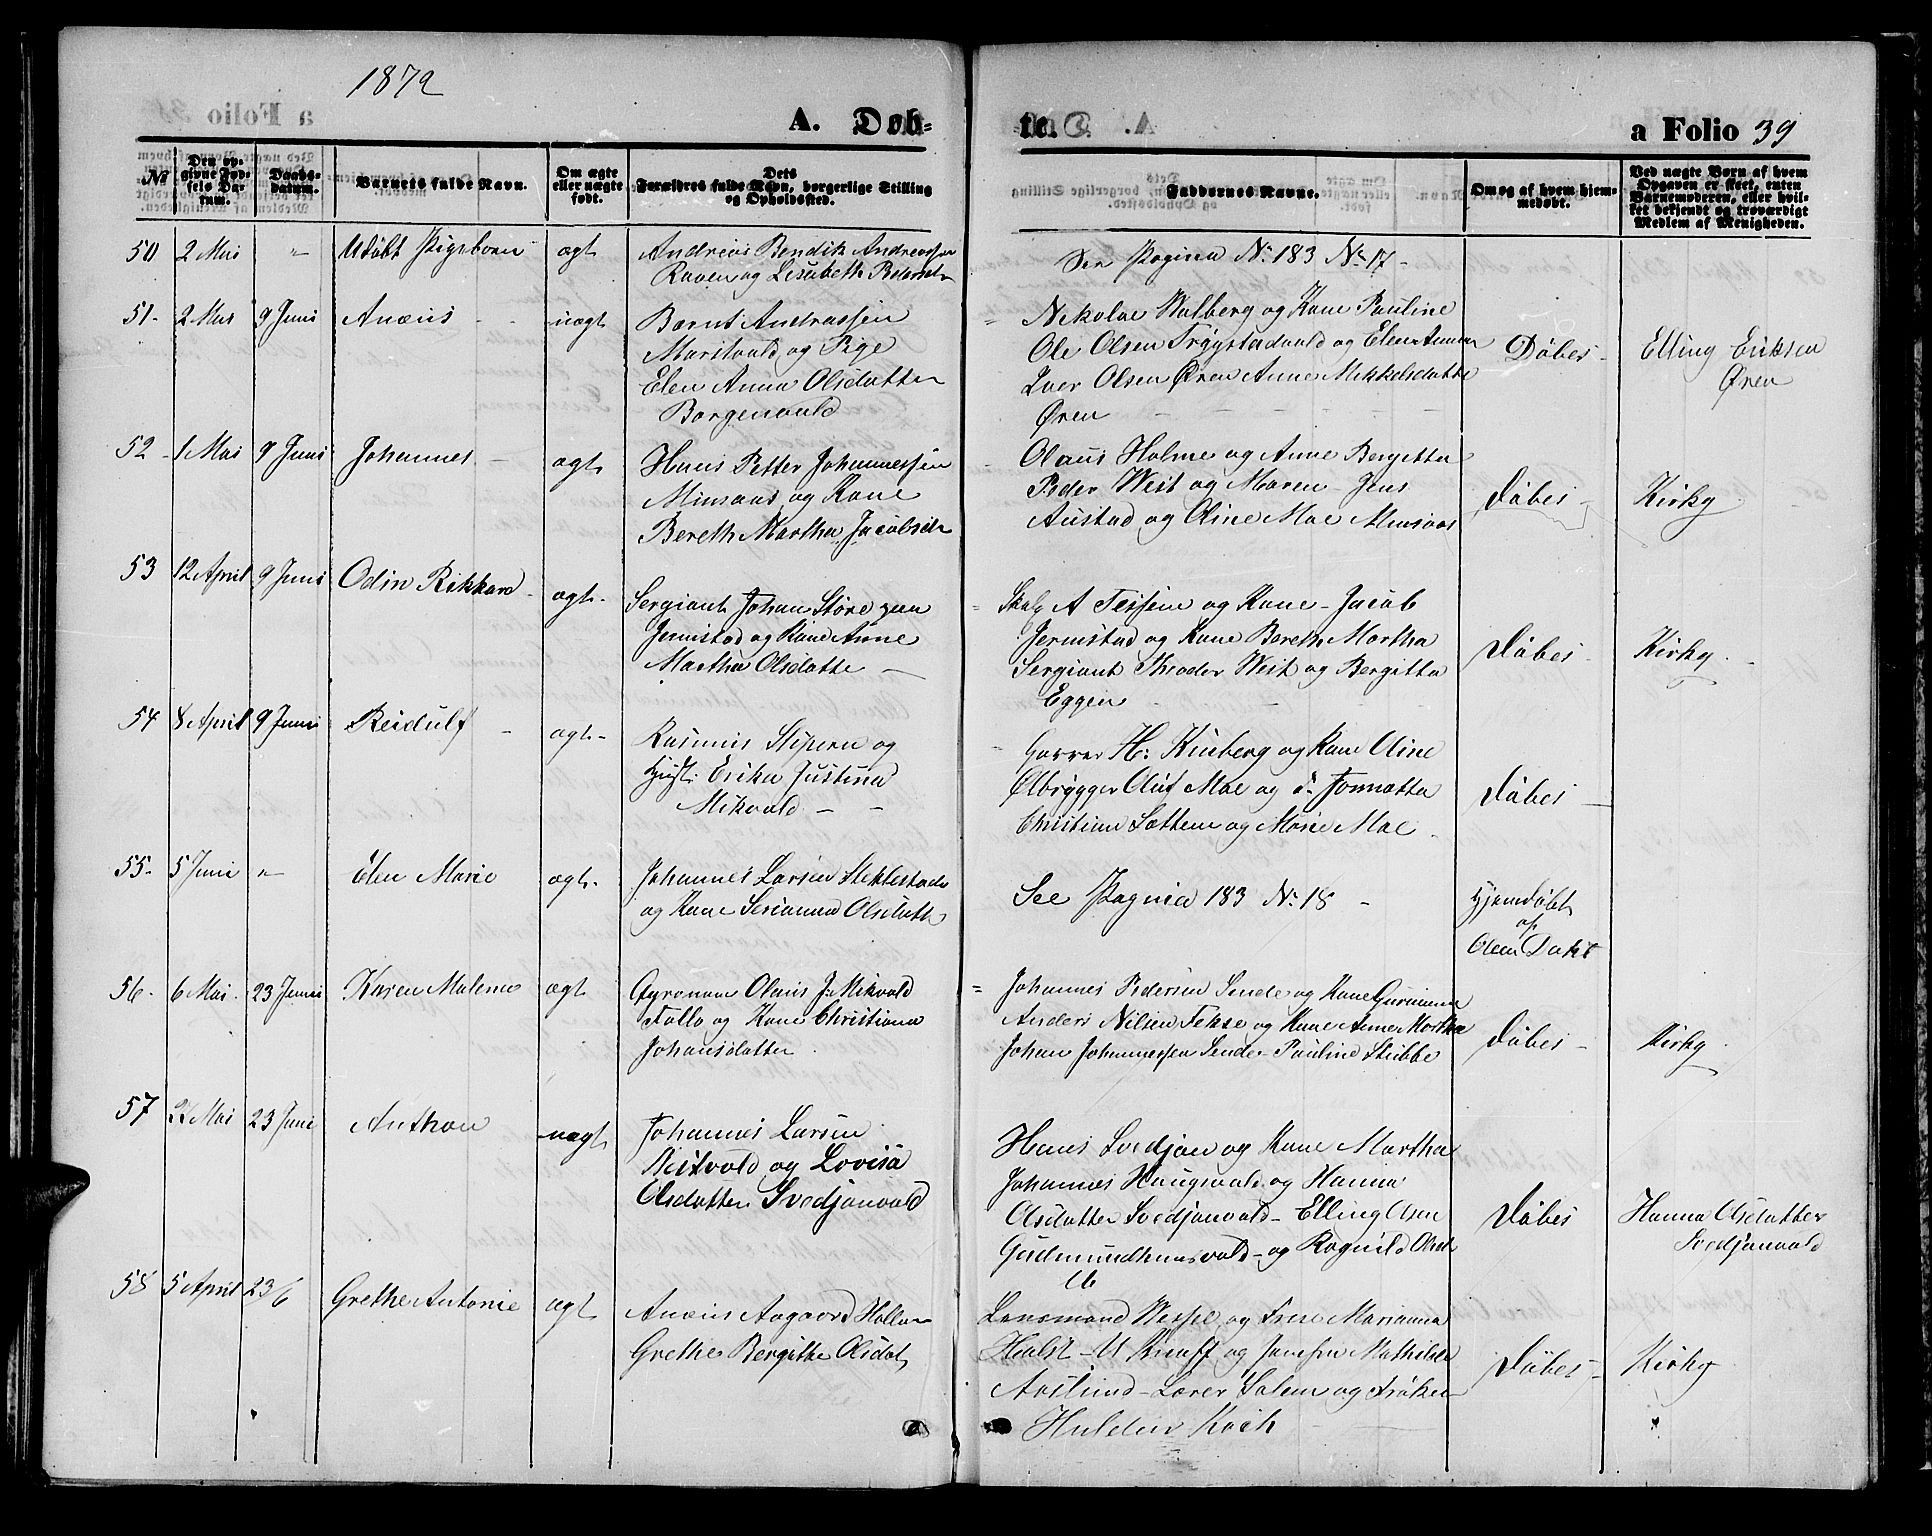 1872
A. Døb-
te.
a Folio 39
№
Den op-
givne Fød-
sels Da-
tum.
Daabs-
datum.
Barnets fulde Navn.
Om ægte
eller uægte
født.
Dets
Forældres fulde Navn, borgerlige Stilling
og Opholdssted.
Faddernes Navne.
Om og af hvem hjem-
medøbt.
Ved uægte Børn af hvem
Opgaven er skeet, enten
Barnemoderen, eller hvil-
ket bekjendt og troværdigt
Medlem af Menigheden.
50 2 Mai " Udøbt Pigebarn ægt
Andreas Bendik Andreassen
Raven og Lisabeth Pederst
See Pagina № 183 № 17 -
51. 2 Mai 9 Juni Anæus uægt
Bernt Andreassen
Maritvald og Pige
Elen Anna Olsdatter
Borgenvald
Nikolai Walberg og Kone Pauline
Ole Olsen Trøgstadvald og Elen Anna
Iver Olsen Ören Anne Mikkelsdatte
Øren
Döbes Elling Eriksen
Øren
52 1 Mai 9 Juni Johannes ægt
Hans Petter Johannessen
Minsaas og Kone
Bereth Martha Jacobsdt
Olaus Holme og Anne Bergitta
Peder West og Maren - Jens
Austad og Oline Moe Minsaas
Döbes Kirky
53 12 April 9 Juni Odin Rikkard ægt
Sergiant Johan Störe
Jermstad og Kone Anne
Martha Olsdatte
A Tessem og Kone - Jacob
Jermstad og Kone Bereth Martha
Sergiant Theoder West og Bergitta
Eggen
Döbes Kirky
54 8 April 9 Juni Reidulf ægt
Rasmus Stiperu og
Hust: Erika Justina
Mikvald
Garver H: Kinberg og Kone Oline
Ølbrygger Oluf Moe og Jonnatta
Christian Sættem og Marie Moe
Döbes
55. 5 Juni " Elen Marie ægt
Johannes Larsen Stiklestad
og Kone Serianna Olsdatte
See Pagina 183 № 18 -
Hjemdöbt
af
56. 6 Mai 23 Juni Karen Malenie ægt
Olaus J: Mikvold
Tollo og Kone Christiana
Johansdatter
Johannes Pedersen Sende og Kone Gurianna
Anders Nilsen Fekse og Kone Anne Martha
Johan Johannessen Sende - Pauline Stubbe
Döbes Kirky
57 Mai 23 Juni Anthon uægt
Johannes Larsen
Nestvold og Lovisa
Olsdatter Svedjanvald
Hans Svedjan og Kone Martha
Johannes Haugsvald og Hanna
Olsdatter Svedjanvald - Elling Olsen
Gudmundhusvald - og Ragnild Olsd
Döbes Hanna Olsdatter
Svedjanvald
58 5 April 23/6 Grethe Antonie ægt
Anæus Aagaard Holla
Grethe Bergithe Olsdat
Lensmand Wessel og Frue Marianna
Holst - U Knuff og Jomfru Mathilde
Aaslund - Lærer Salem og Frøken
Hulden Koch
Döbes Kirky